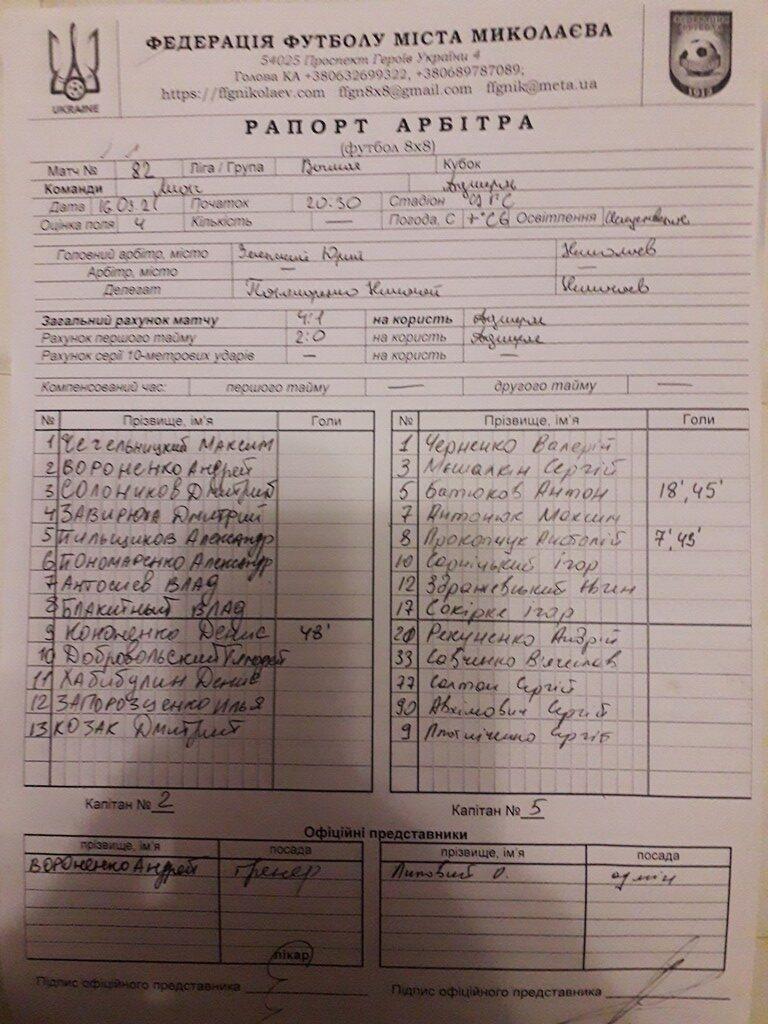 ФЕДЕРАЦІЯ ФУТБОЛУ МІСТА МИКОЛАЄВА
54025 Проспект Героїв України 4
Голова КА +380632699322, +380689787089;
https://ffgnikolaev.com ffgn8x8@gmail.com ffgnik@meta.ua
UKRAINE
РАПОРТ АРБІТРА
(футбол 8х8)
Матч № 82 Ліга / Група Кубок
Команди
Дата 16.03.21 Початок 20.30 Стадіон
Оцінка поля 4 Кількість — Погода, С Освітлення
Головний арбітр, місто Юрий Николаев
Арбітр, місто — —
Делегат Николай Николаев
Загальний рахунок матчу 4:1 на користь
Рахунок першого тайму 2:0 на користь
Рахунок серії 10-метрових ударів — на користь —
Компенсований час: першого тайму — другого тайму —
№ Прізвище, ім'я Голи
1 Чечельницкий Максим
2 ВОРОНЕНКО Андрей
3 СОЛОНИКОВ Дмитрий
4 ЗАВИРЮХА Дмитрий
5 ПИЛЬЩИКОВ Александр
6 ПОНОМАРЕНКО Александр
7 АНТОСИЕВ ВЛАД
8 БЛАКИТНЫЙ ВЛАД
9 КОНОНЕНКО Денис 48'
10 Добровольский
11 ХАБИБУЛИН Денис
12 ЗАПОРОЗЦЕНКО ИЛЬЯ
13 КОЗАК Дмитрий
Капітан № 2
№ Прізвище, ім'я Голи
1 Черненко Валерій
3 Мошалкін Сергій
5 Батюков Антон 18', 45'
7 Антонюк Максим
8 Прокопчук Анатолій 7', 43'
10 Ігор
12 Здражевський Євген
17 Сокірко Ігор
20 Рекуненко Андрій
33 Савченко Вячеслав
77 Солтан Сергій
90 Авхімович Сергій
9 Сергій
Капітан № 5
Офіційні представники
прізвище, ім'я посада
ВОРОНЕНКО Андрей тренер
лікар
Підпис офіційного представника
прізвище, ім'я посада
Липовий О. адмін
Підпис офіційного представника